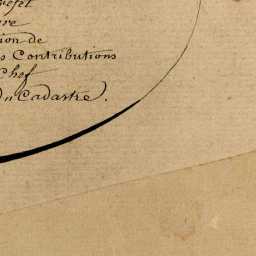 ion de
Contributions
Chef
du Cadastre.